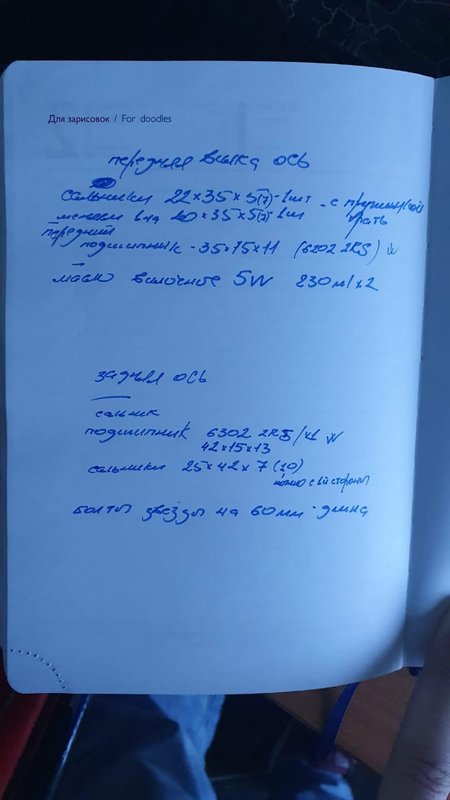 Для зарисовок / For doodles
передняя вилка ось
сальники 22×35×5(7)-1шт - с пружинкой
меняем на 20×35×5(7)-1шт брать
передний
подшипник - 35×15×11 (6202 2RS)
масло вилочное 5W 230м/ ×2
задняя ось
сальник
подшипник 6302 2RS/×1
42×15×13
сальники 25×42×7(10)
с 1й стороны
болты звезды на 60мм - длина